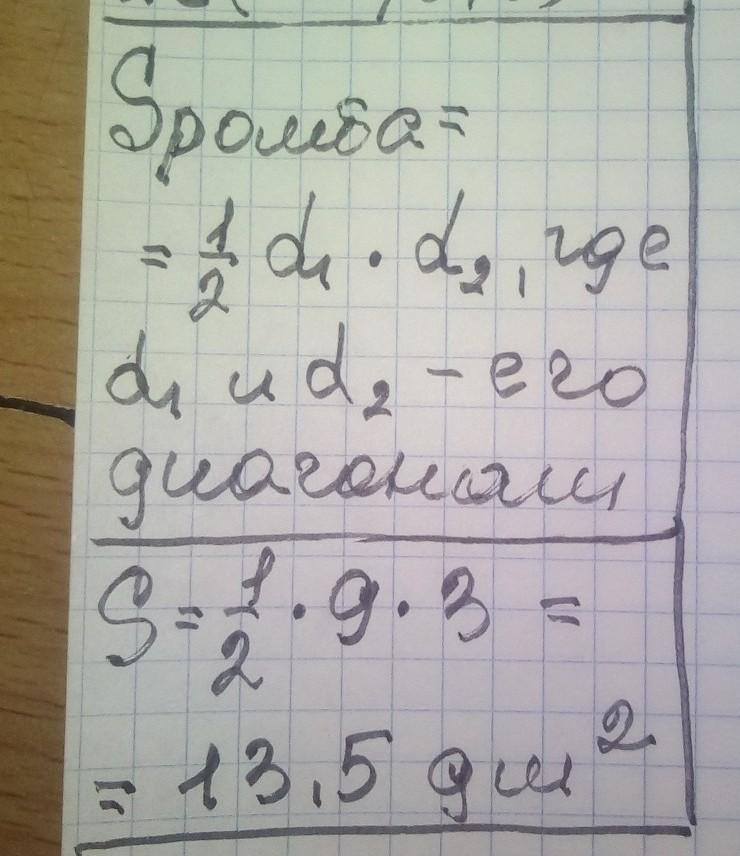 Sромба=
= 1/2 d₁ · d₂, где
d₁ и d₂ – его
диагонали
S = 1/2 · 9 · 3 =
= 13,5 дм²